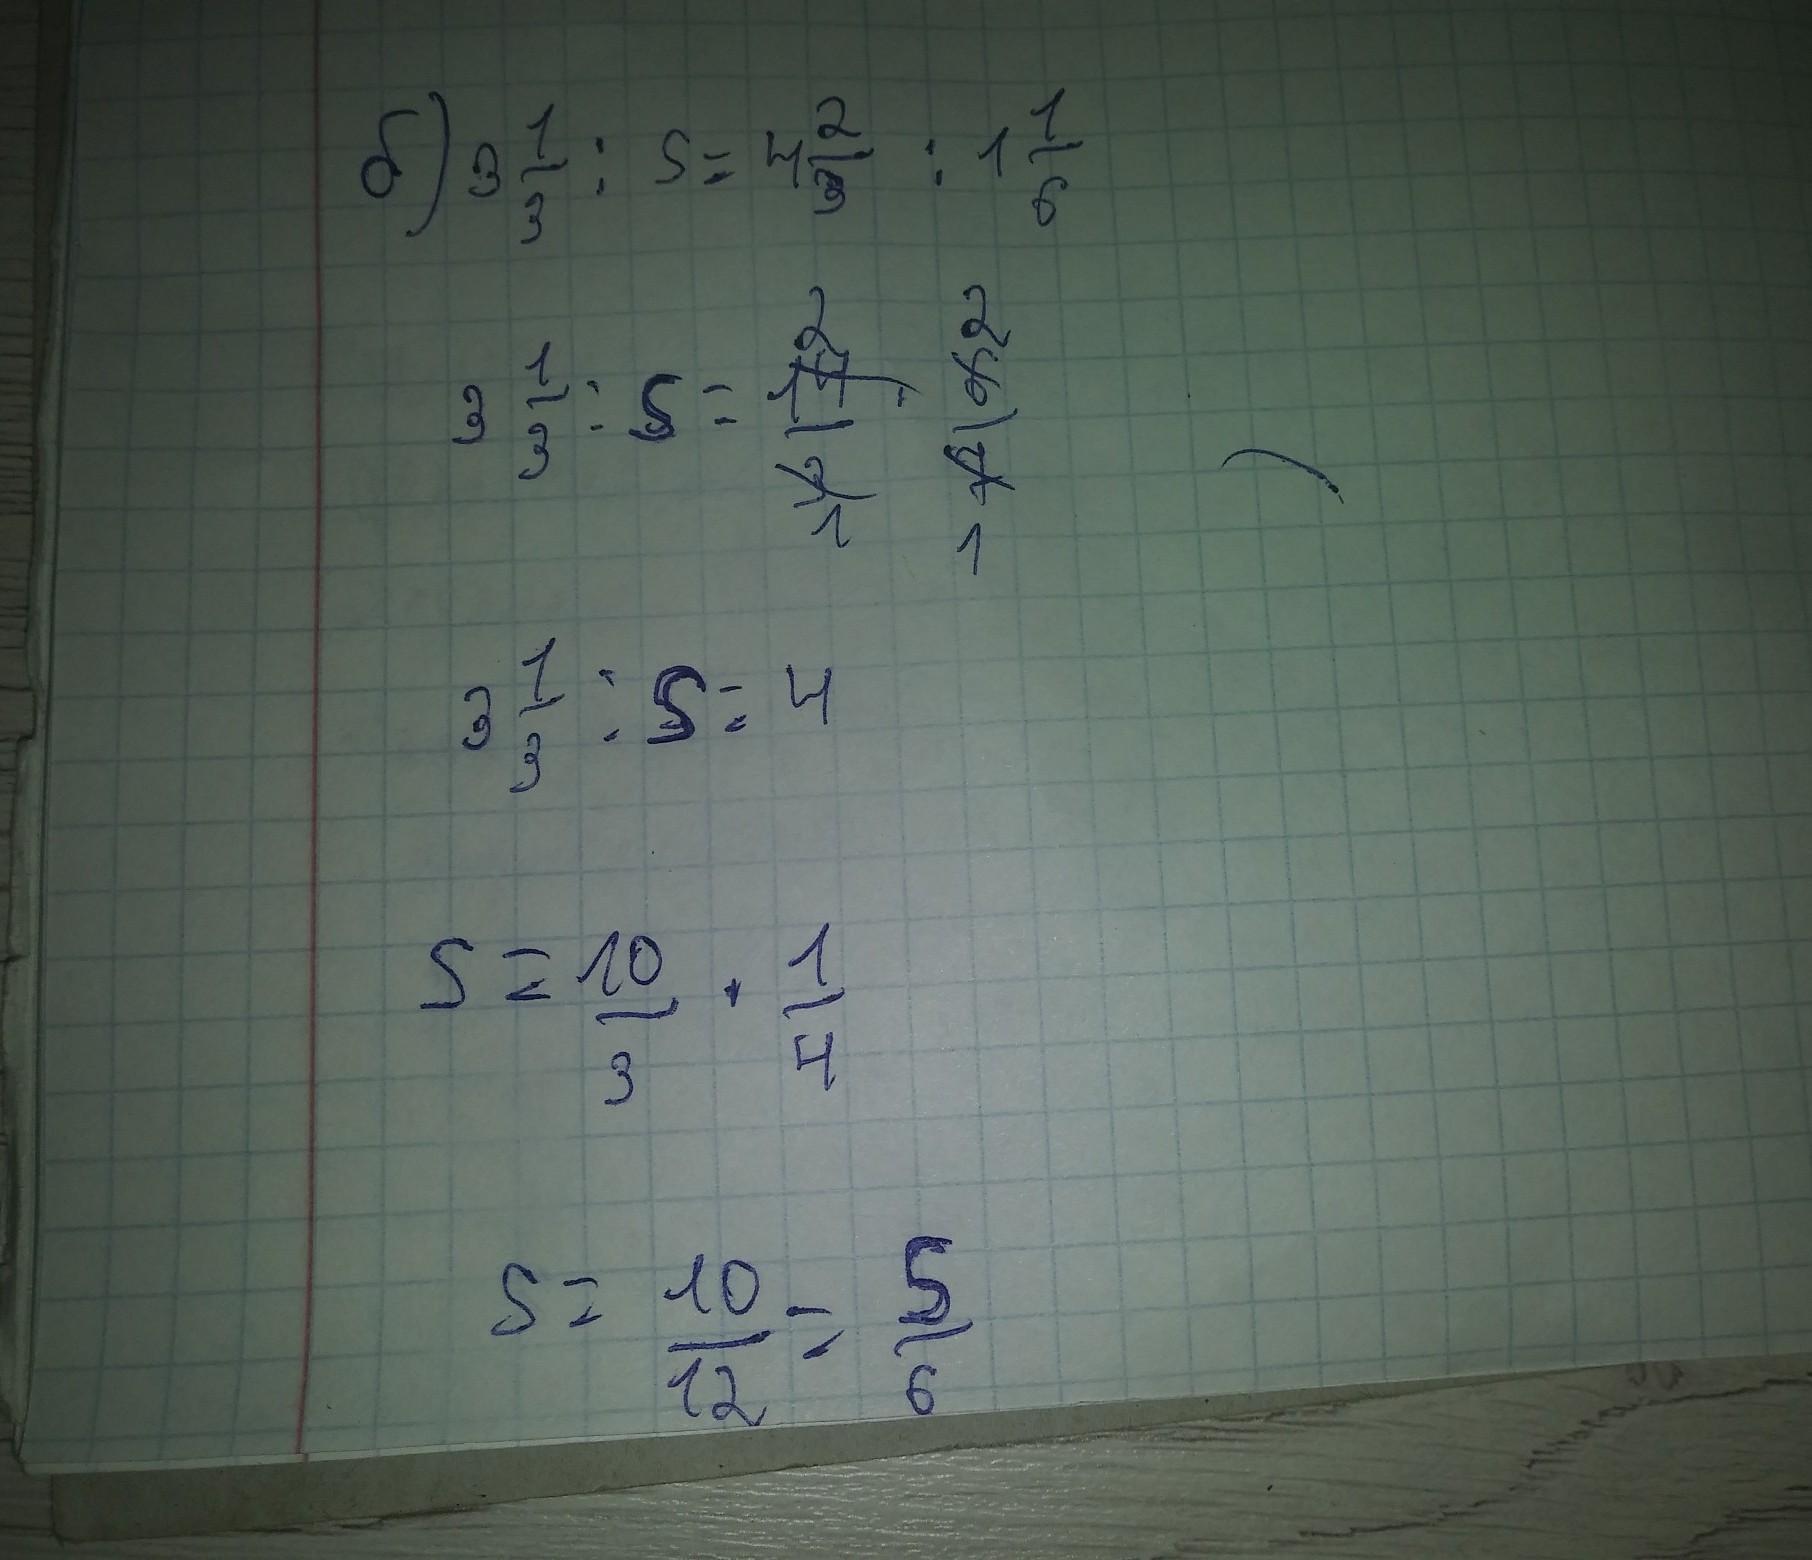 б) 3 1/3 : S = 4 2/3 : 1 1/6
3 1/3 : S = 14/3 · 6/7
3 1/3 : S = 4
S = 10/3 · 1/4
S = 10/12 = 5/6